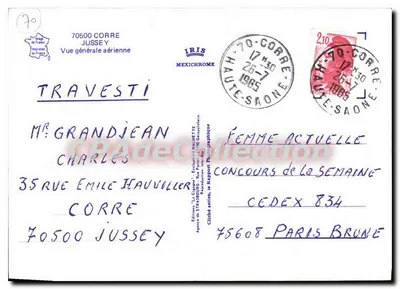 70
70500 CORRE
JUSSEY
Vue générale aérienne
IRIS
MEXICHROME
70-CORRE
17 H 30
26-7
1985
HAUTE-SAONE
2,10
70-CORRE
17 H 30
26-7
1985
HAUTE-SAONE
TRAVESTI
Mr GRANDJEAN
CHARLES
35 RUE EMILE HAUVILLER
CORRE
70500 JUSSEY
FEMME ACTUELLE
CONCOURS de la SEMAINE
CEDEX 834
75608 PARIS BRUNE